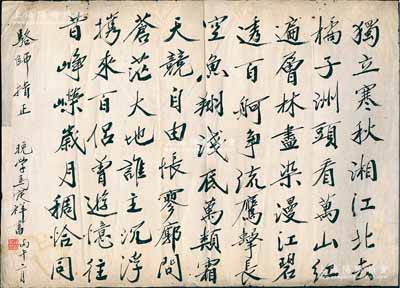 獨立寒秋湘江北去
橘子洲頭看萬山紅
遍層林盡染漫江碧
透百舸爭流鷹擊長
空魚翔淺底萬類霜
天競自由悵寥廓問
蒼茫大地誰主沉浮
携來百侶曾遊憶往
昔崢嶸歲月稠恰同
駱師 指正
晚學 祥書